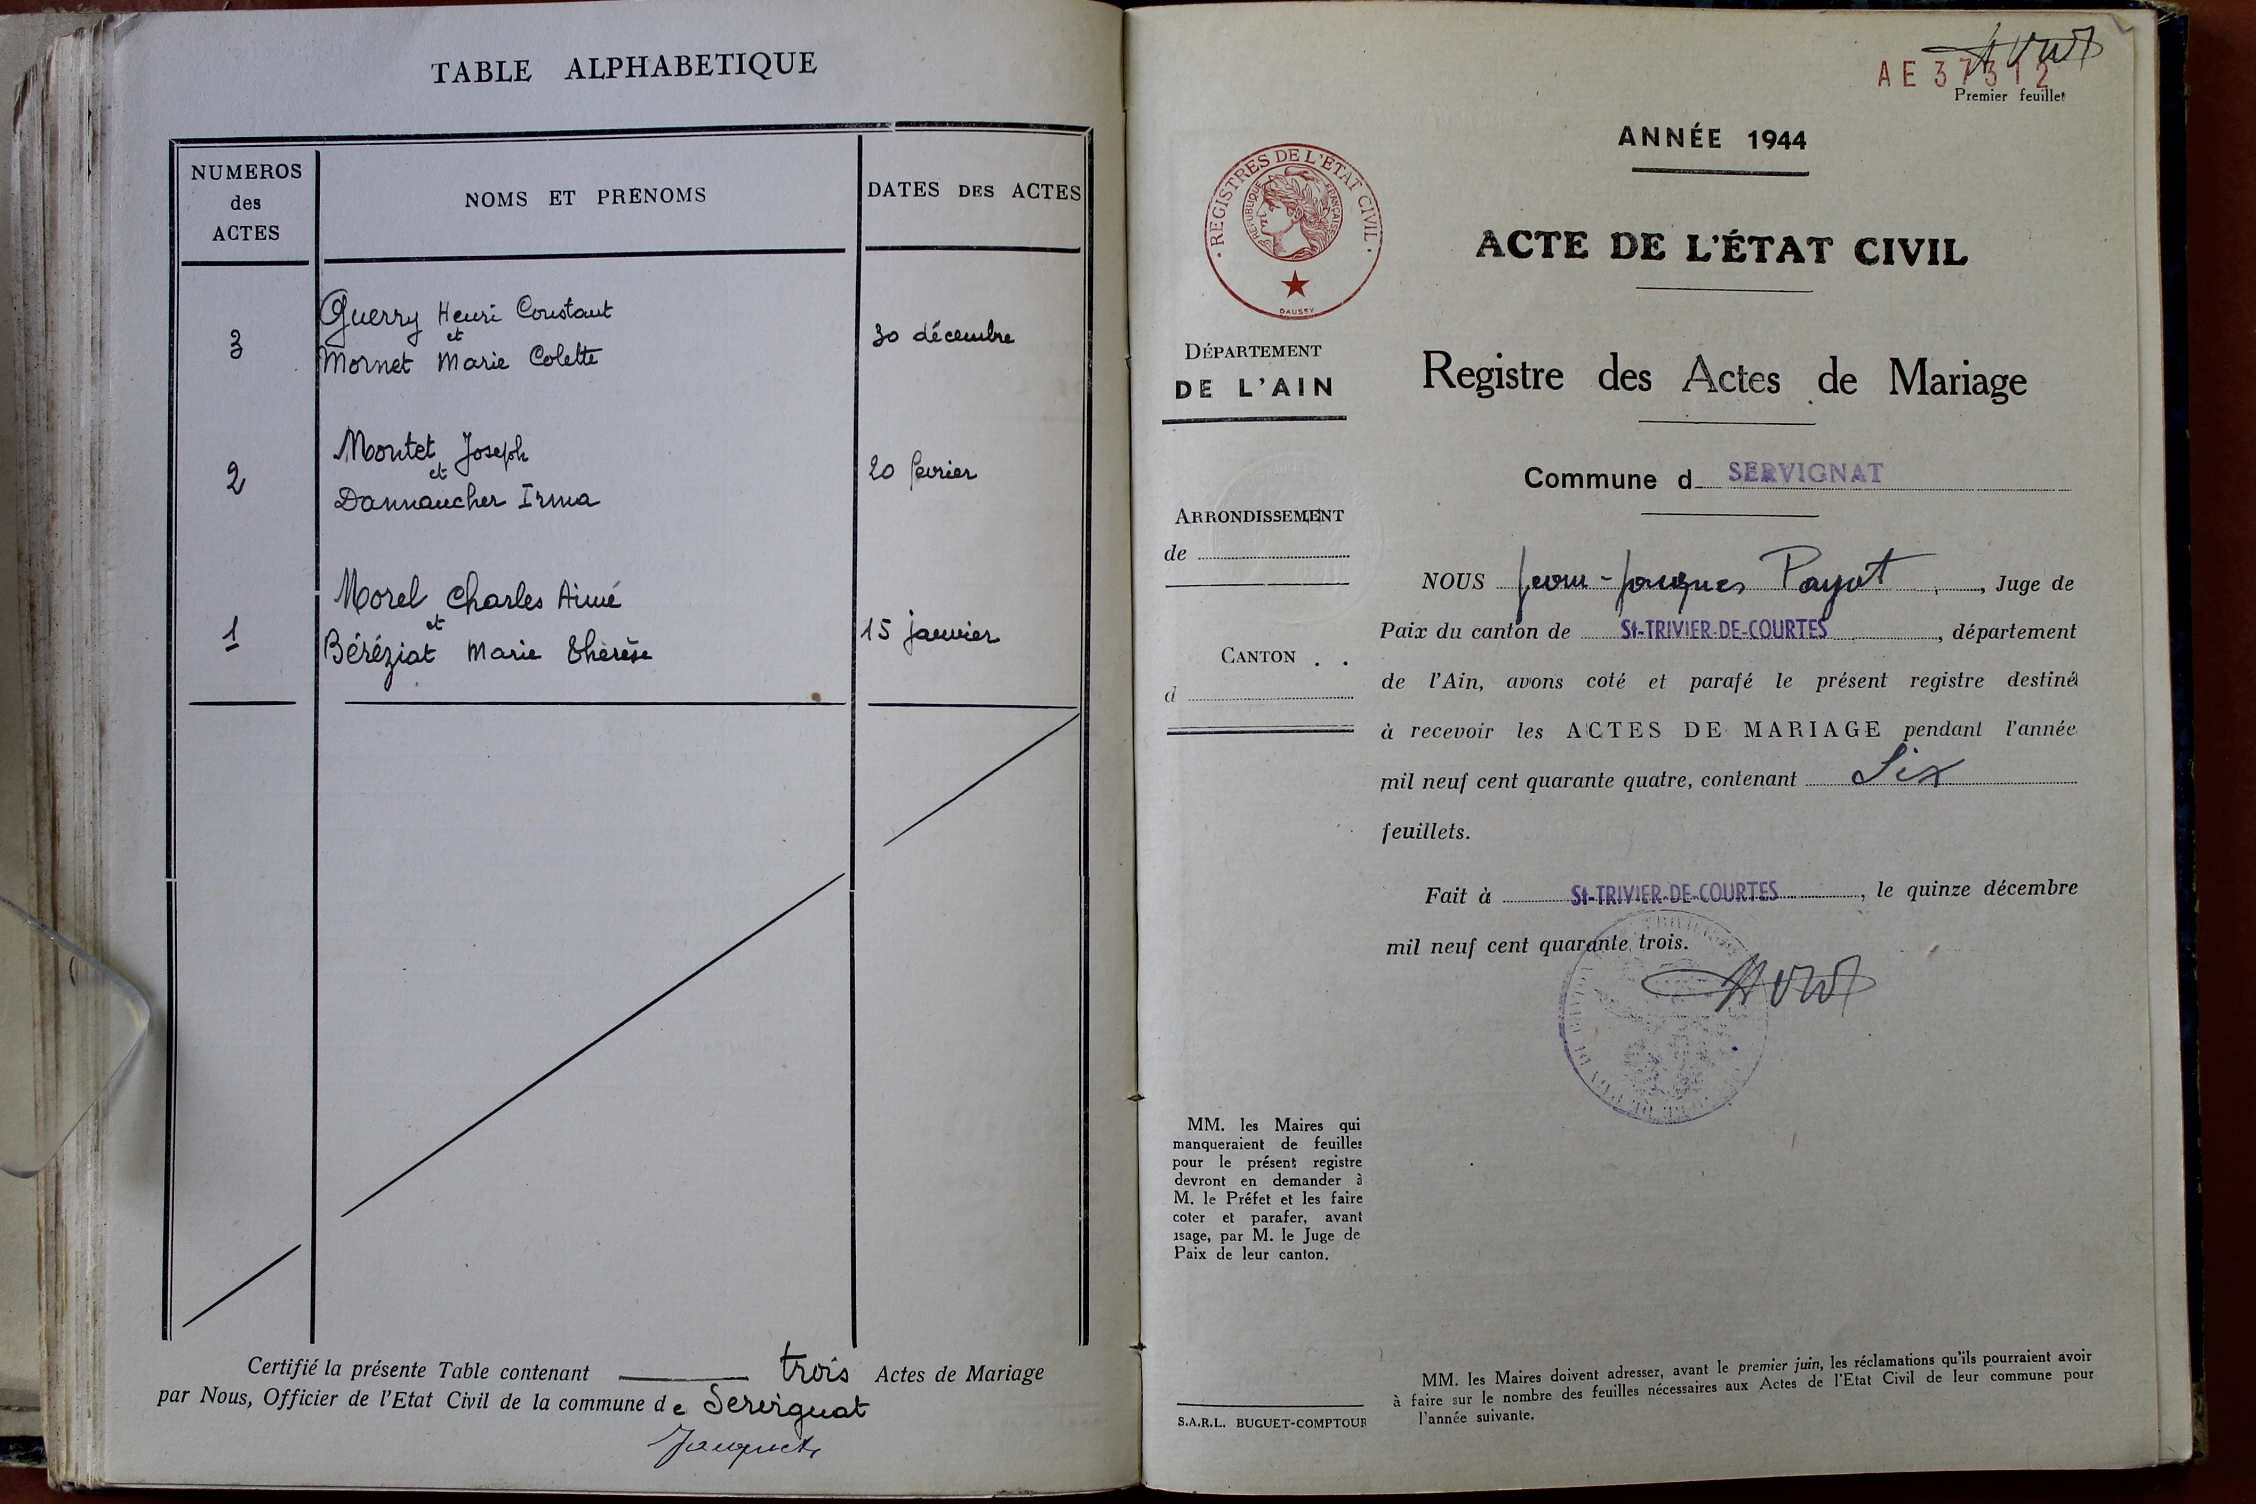 TABLE ALPHABETIQUE
NUMEROS
des
ACTES
NOMS ET PRENOMS
DATES DES ACTES
3
Guerry Henri Constant
et
Mornet Marie Colette
30 décembre
2
Montet Joseph
et
Dannancher Irma
20 fevrier
1
Morel Charles Aimé
et
Béréziat Marie Thérèse
15 janvier
Certifié la présente Table contenant trois Actes de Mariage
par Nous, Officier de l'Etat Civil de la commune de Servignat
AE 37312
Premier feuillet
ANNÉE 1944
REGISTRES DE L'ETAT CIVIL
REPUBLIQUE FRANÇAISE
DAUSSY
ACTE DE L'ÉTAT CIVIL
DÉPARTEMENT
DE L'AIN
Registre des Actes de Mariage
Commune d SERVIGNAT
ARRONDISSEMENT
de
CANTON . .
d
NOUS Jean-Jacques Payot, Juge de
Paix du canton de St-TRIVIER-DE-COURTES, département
de l'Ain, avons coté et parafé le présent registre destiné
à recevoir les ACTES DE MARIAGE pendant l'année
mil neuf cent quarante quatre, contenant Six
feuillets.
Fait à St-TRIVIER-DE-COURTES, le quinze décembre
mil neuf cent quarante trois.
MM. les Maires qui
manqueraient de feuilles
pour le présent registre
devront en demander à
M. le Préfet et les faire
coter et parafer, avant
usage, par M. le Juge de
Paix de leur canton.
S.A.R.L. BUGUET-COMPTOUR
MM. les Maires doivent adresser, avant le premier juin, les réclamations qu'ils pourraient avoir
à faire sur le nombre des feuilles nécessaires aux Actes de l'Etat Civil de leur commune pour
l'année suivante.